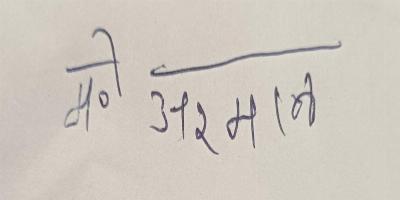 मो० अरमान